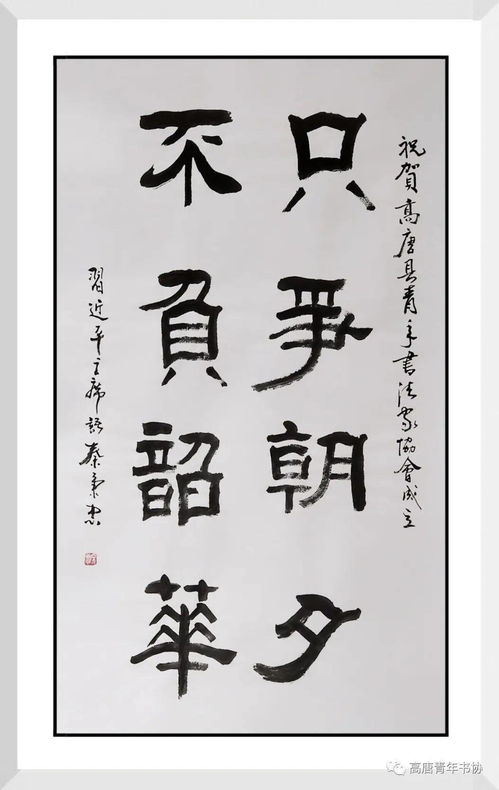 祝賀高唐县青年書法家協會成立
只爭朝夕
不負韶華
習近平主席語秦秉忠
高唐青年书协